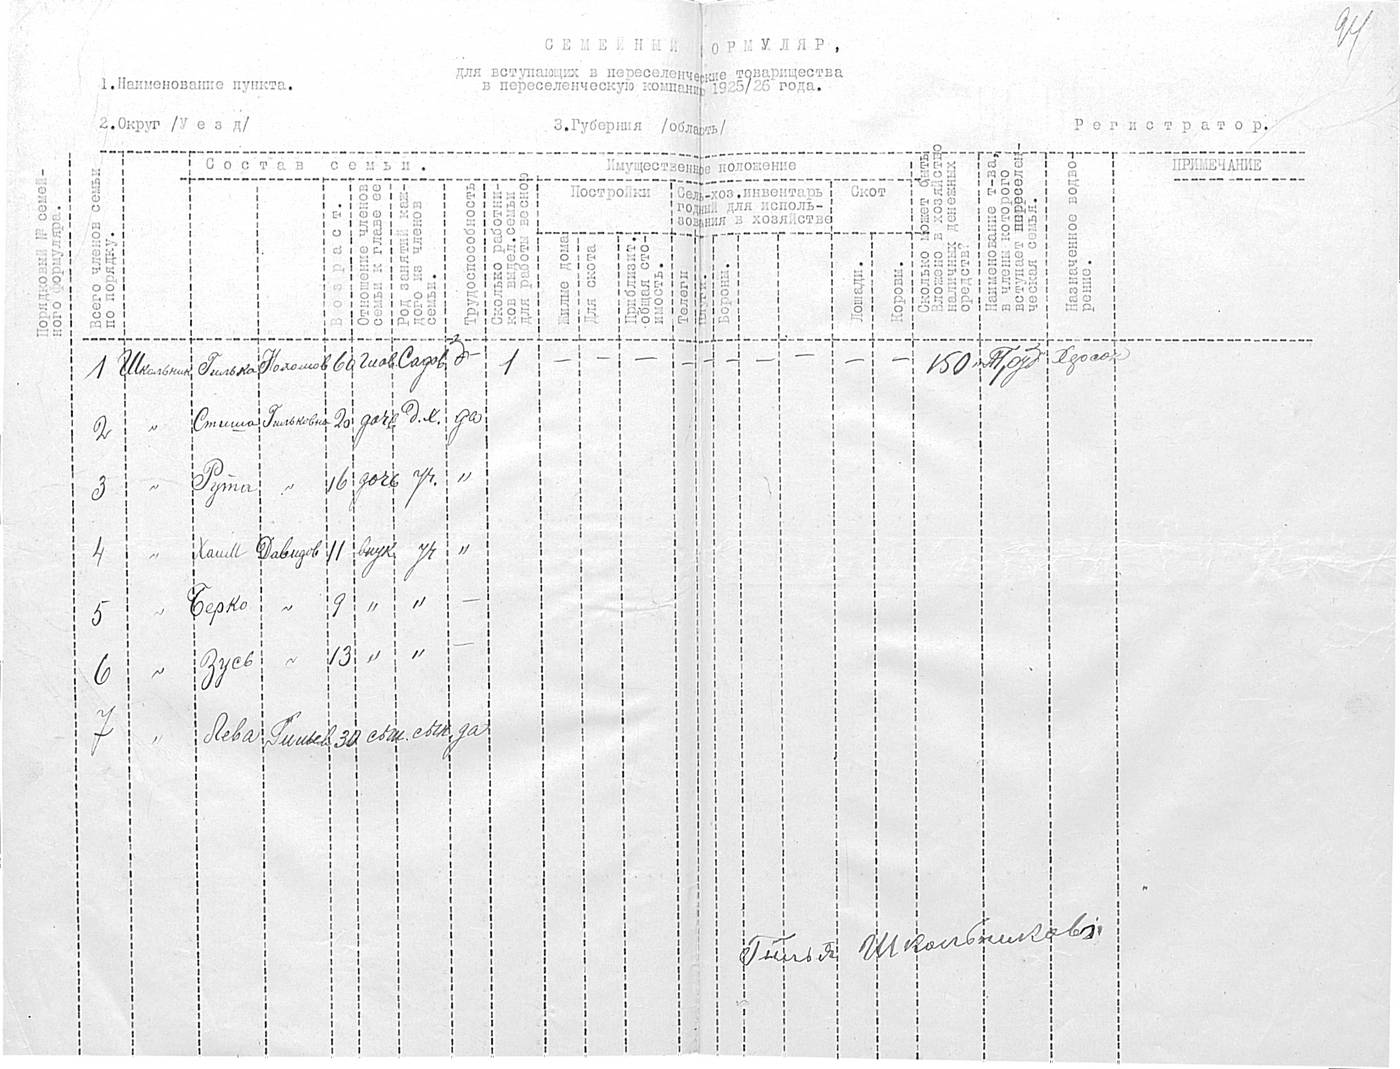 94
СЕМЕЙНЫЙ ФОРМУЛЯР,
для вступающих в переселенческие товарищества
в переселенческую компанию 1925/26 года.
1.Наименование пункта.
2.Округ /Уезд/
3.Губерния /область/
Регистратор.
Порядковый № семей-
ного формуляра.
Всего членов семьи
по порядку.
Состав семьи.
Возраст.
Отношение членов
семьи к главе ее
Род занятий каж-
дого из членов
семьи.
Трудоспособность
Сколько работни-
ков выдел.семьи
для работы весной
Имущественное положение
Постройки
Жилые дома
Для скота
Приблизит.
общая сто-
имость.
Сель-хоз.инвентарь
годный для исполь-
зования в хозяйстве
Телеги
Плуги.
Бороны.
Скот
Лошади.
Коровы.
Сколько может быть
вложено в хозяйство
наличных денежных
средств?
Наименование т-ва,
в члены которого
вступает переселен-
ческая семья.
Назначенное водво-
рение.
ПРИМЕЧАНИЕ
1 Школьник Гилька 60 глав Садов 1 — — — — — — — — — 150 Труд Херсон
2 " Гильковна 20 дочь Д.Х. да
3 " Рута " 16 дочь уч. "
4 " Хаим Давидов 11 внук уч "
5 " Берко " 9 " " —
6 " Зусь " 13 " " —
7 " Лева 30 сын. да
Школьников